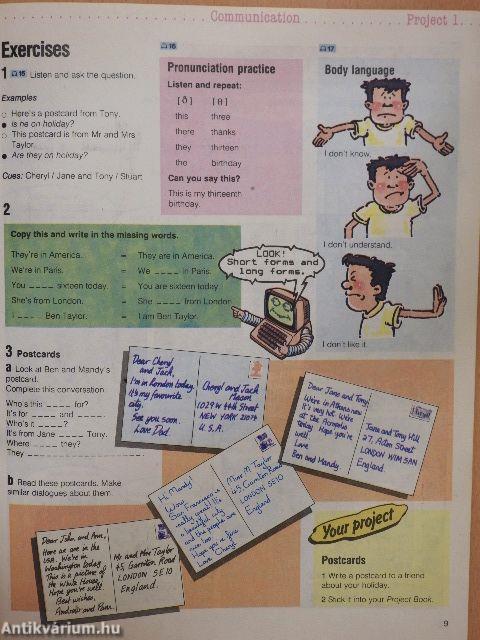 Communication
Project 1
Exercises
1 15 Listen and ask the question.
Examples
Here's a postcard from Tony.
Is he on holiday?
This postcard is from Mr and Mrs
Taylor.
Are they on holiday?
Cues: Cheryl / Jane and Tony / Stuart
16
Pronunciation practice
Listen and repeat:
[ð] [θ]
this three
there thanks
they thirteen
the birthday
Can you say this?
This is my thirteenth
birthday.
17
Body language
I don't know.
I don't understand.
I don't like it.
2
Copy this and write in the missing words.
They're in America. = They are in America.
We're in Paris. = We ____ in Paris.
You ____ sixteen today. = You are sixteen today.
She's from London. = She ____ from London.
I ____ Ben Taylor. = I am Ben Taylor.
LOOK!
Short forms and
long forms.
3 Postcards
a Look at Ben and Mandy's
postcard.
Complete this conversation.
Who's this ____ for?
It's for ____ and ____.
Who's it ____?
It's from Jane ____ Tony.
Where ____ they?
They ____
b Read these postcards. Make
similar dialogues about them.
Dear Cheryl
and Jack,
I'm in London today.
It's my favourite
city.
See you soon.
Love Dad.
Cheryl and Jack
Mason
1029 W 44th Street
NEW YORK
U.S.A.
Dear Jane and Tony
We're in Athens now
It's very hot. We're
at the Acropolis
today. Hope you're
well
Love
Ben and Mandy
Jane and Tony Hill
27, Aston Street
LONDON W1M 5AN
England.
Hi Mandy!
Wow!
San Francisco is
really great! It's
a beautiful city
and the people are
nice too.
Hope you're fine
Love Cheryl
Miss M Taylor
45 Garriton Road
LONDON SE10
England
Dear John and Ann,
Here we are in the
USA. We're in
Washington today.
This is a picture of
the White House.
Hope you're well.
Best wishes,
Andreas and Pam.
Mr and Mrs Taylor
45, Garriton Road
LONDON SE10
England.
Your project
Postcards
1 Write a postcard to a friend
about your holiday.
2 Stick it into your Project Book.
9
Antikvárium.hu